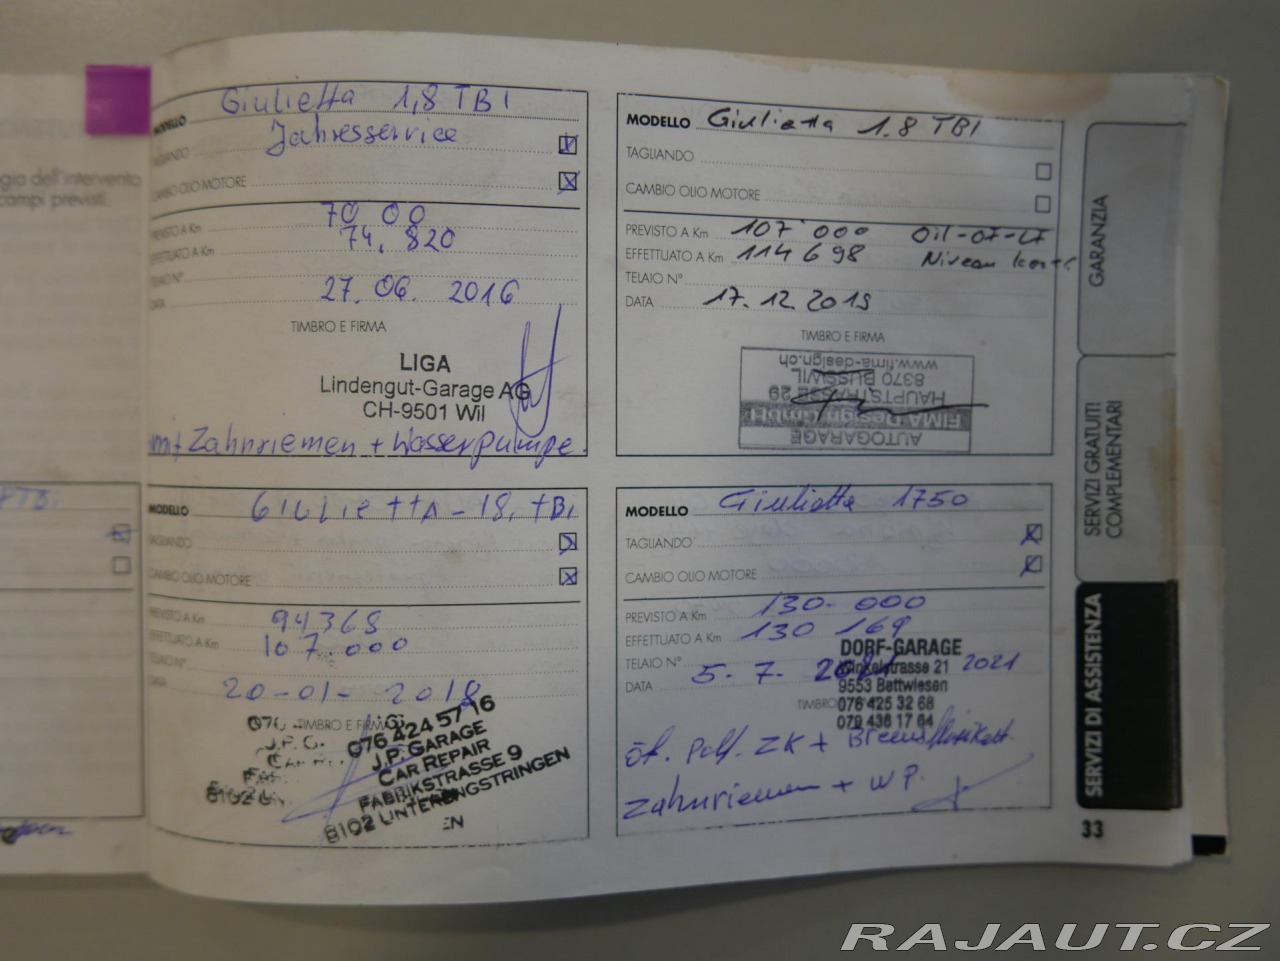 gio dell'intervento
campi previsti.
MODELLO Giulietta 1,8 TBI
Jahresservice
TAGLIANDO
CAMBIO OLIO MOTORE
PREVISTO A Km 70.00
EFFETTUATO A Km 74.820
TELAIO N°
DATA 27.06. 2016
TIMBRO E FIRMA
LIGA
Lindengut-Garage AG
CH-9501 Wil
Zahnriemen + Wasserpumpe.
MODELLO Giulietta 1.8 TBI
TAGLIANDO
CAMBIO OLIO MOTORE
PREVISTO A Km 107'000
EFFETTUATO A Km 114698 Niveau
TELAIO N°
DATA 17.12.2019
TIMBRO E FIRMA
AUTOGARAGE
FIMA Design GmbH
HAUPTSTRASSE 29
8370 BUSSWIL
www.fima-design.ch
MODELLO GIULIETTA - 18. TBi
TAGLIANDO
CAMBIO OLIO MOTORE
PREVISTO A Km 94368
EFFETTUATO A Km 107.000
TELAIO N°
DATA 20-01-2018
TIMBRO E FIRMA
076 424 57 16
J.P. GARAGE
CAR REPAIR
FABRIKSTRASSE 9
8102 UNTERENGSTRINGEN
MODELLO Giulietta 1750
TAGLIANDO
CAMBIO OLIO MOTORE
PREVISTO A Km 130.000
EFFETTUATO A Km 130 169
TELAIO N°
DATA 5.7. 2021 2021
DORF-GARAGE
Winkelstrasse 21
9553 Bettwiesen
076 425 32 68
079 436 17 64
ZK +
Zahnriemen + WP.
GARANZIA
SERVIZI GRATUITI
COMPLEMENTARI
SERVIZI DI ASSISTENZA
33
RAJAUT.CZ